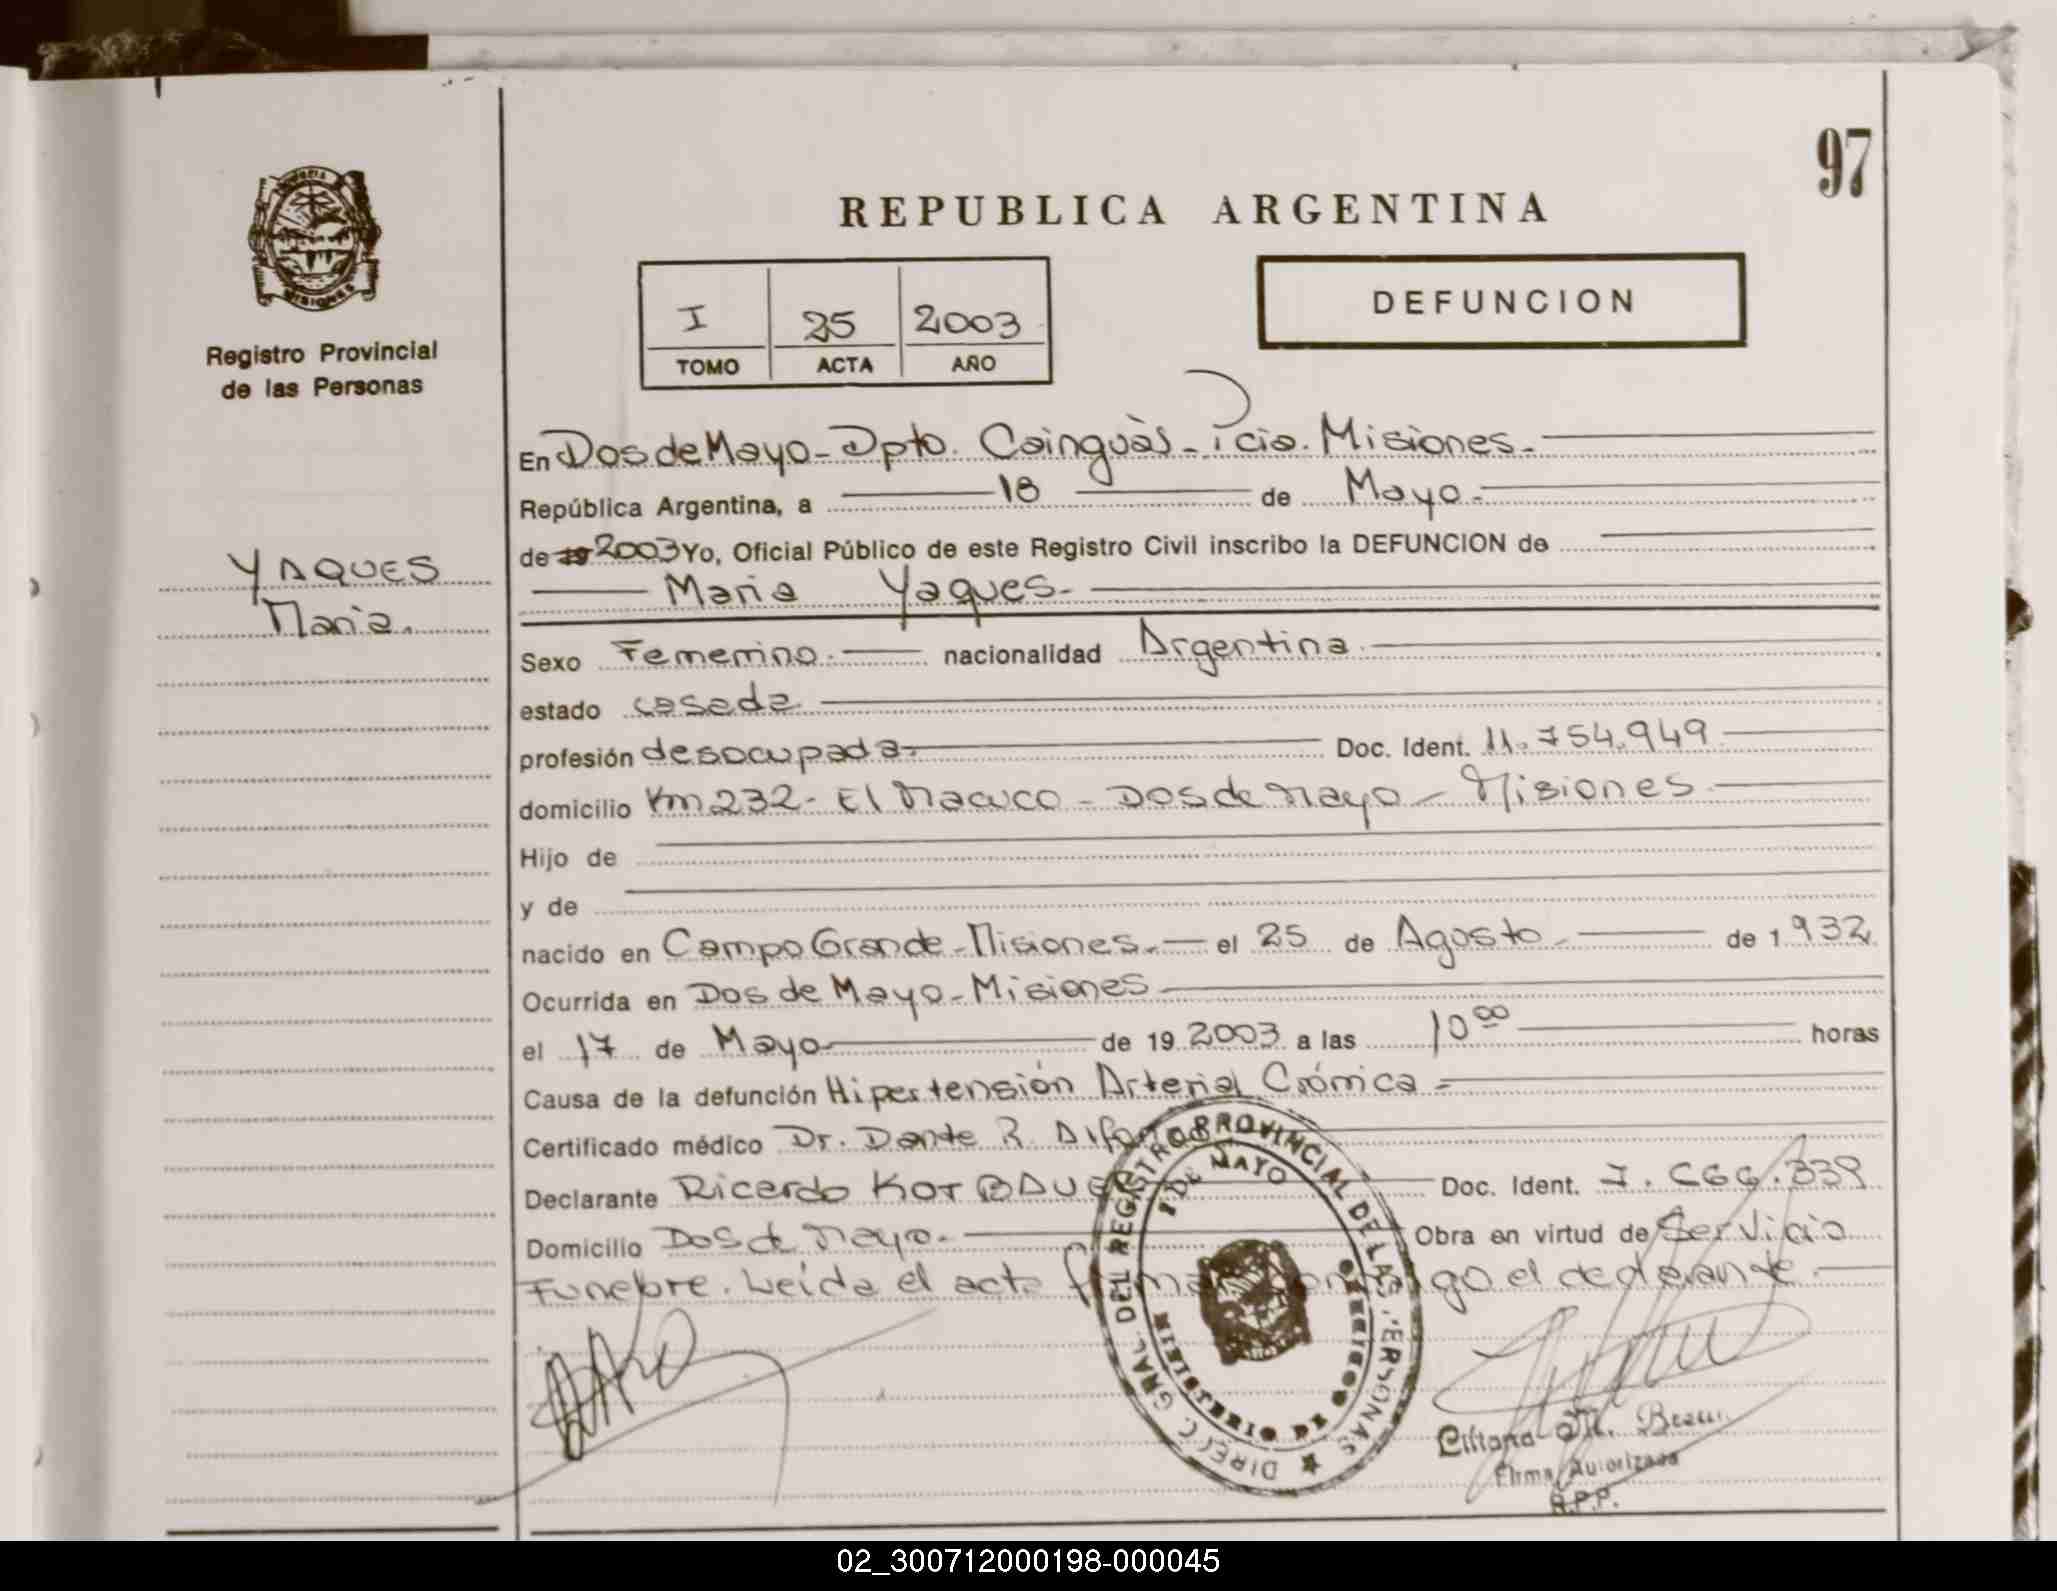 97
MISIONES
Registro Provincial
de las Personas
REPUBLICA ARGENTINA
I 25 2003
TOMO ACTA AÑO
DEFUNCION
YAQUES
Maria.
En Dos de Mayo - Dpto. Cainguàs - Pcia. Misiones.-
República Argentina, a 18 de Mayo.-
de 19 2003 Yo, Oficial Público de este Registro Civil inscribo la DEFUNCION de
Maria Yaques.-
Sexo Femenino.- nacionalidad Argentina.
estado casada
profesión desocupada.- Doc. Ident. 11.754.949
domicilio Km 232 - El Macuco - Dos de Mayo - Misiones
Hijo de
y de
nacido en Campo Grande - Misiones.- el 25 de Agosto - de 1932
Ocurrida en Dos de Mayo - Misiones
el 17 de Mayo - de 19 2003 a las 10 00 horas
Causa de la defunción Hipertensión Arterial Crónica -
Certificado médico Dr. Dante R.
Declarante Ricardo Doc. Ident.
Domicilio Dos de Mayo.- Obra en virtud de Servicio
Funebre. Leida el acta firman conmigo el declarante.-
DIREC. GRAL. DEL REGISTRO PROVINCIAL DE LAS PERSONAS
2 DE MAYO
Liliana M.
Firma Autorizada
R.P.P.
02_300712000198-000045